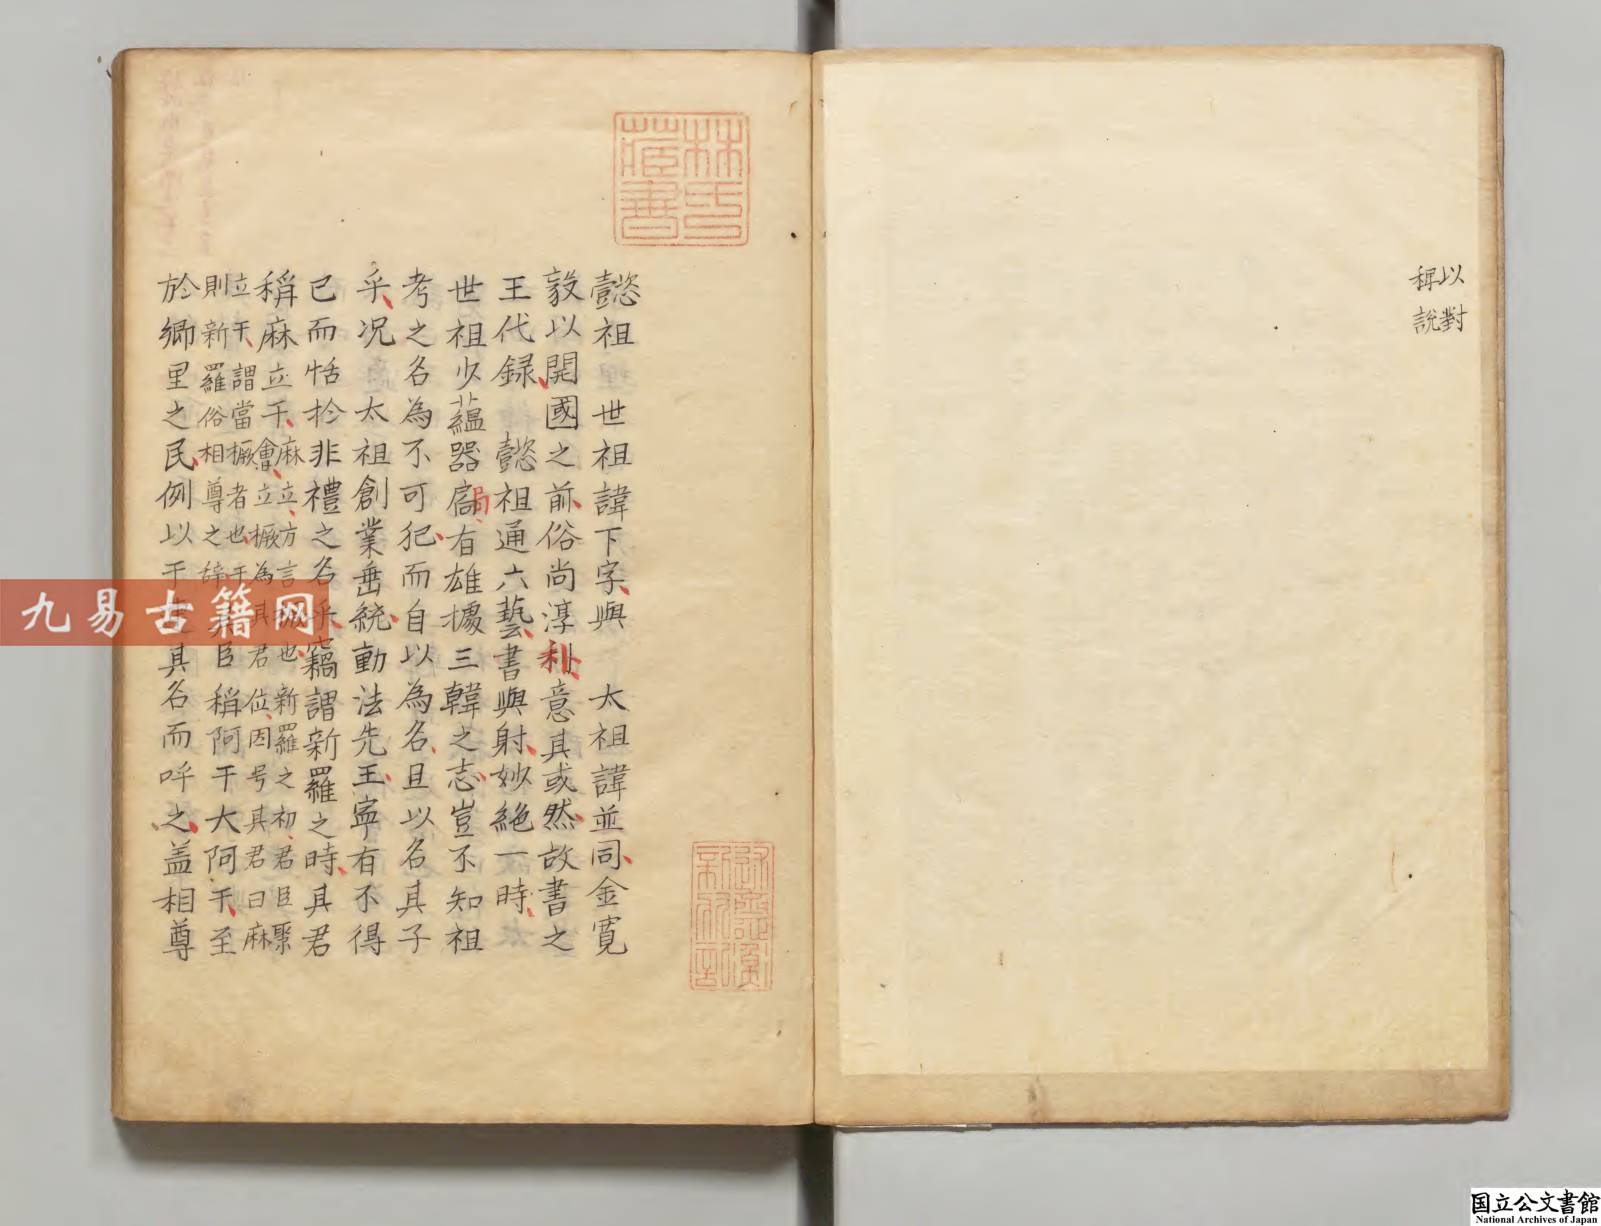 以對
稱說
懿祖　世祖諱下字與　太祖諱並同金寬
毅以開國之前俗尚淳朴意其或然故書之
王代錄　懿祖通六藝書與射妙絶一時
世祖少蘊器局有雄據三韓之志豈不知祖
考之名為不可犯而自以為名且以名其子
乎况太祖創業垂統動法先王寧有不得
已而恬於非禮之名乎竊謂新羅之時其君
稱麻立干
麻立方言橛也新羅之初君臣聚
會立橛為其君位因号其君曰麻
立干謂當橛者也干
則新羅俗相尊之辞
其臣稱阿干大阿干至
於鄉里之民例以干連其名而呼之盖相尊
林氏
藏書
九易古籍网
国立公文書館
National Archives of Japan